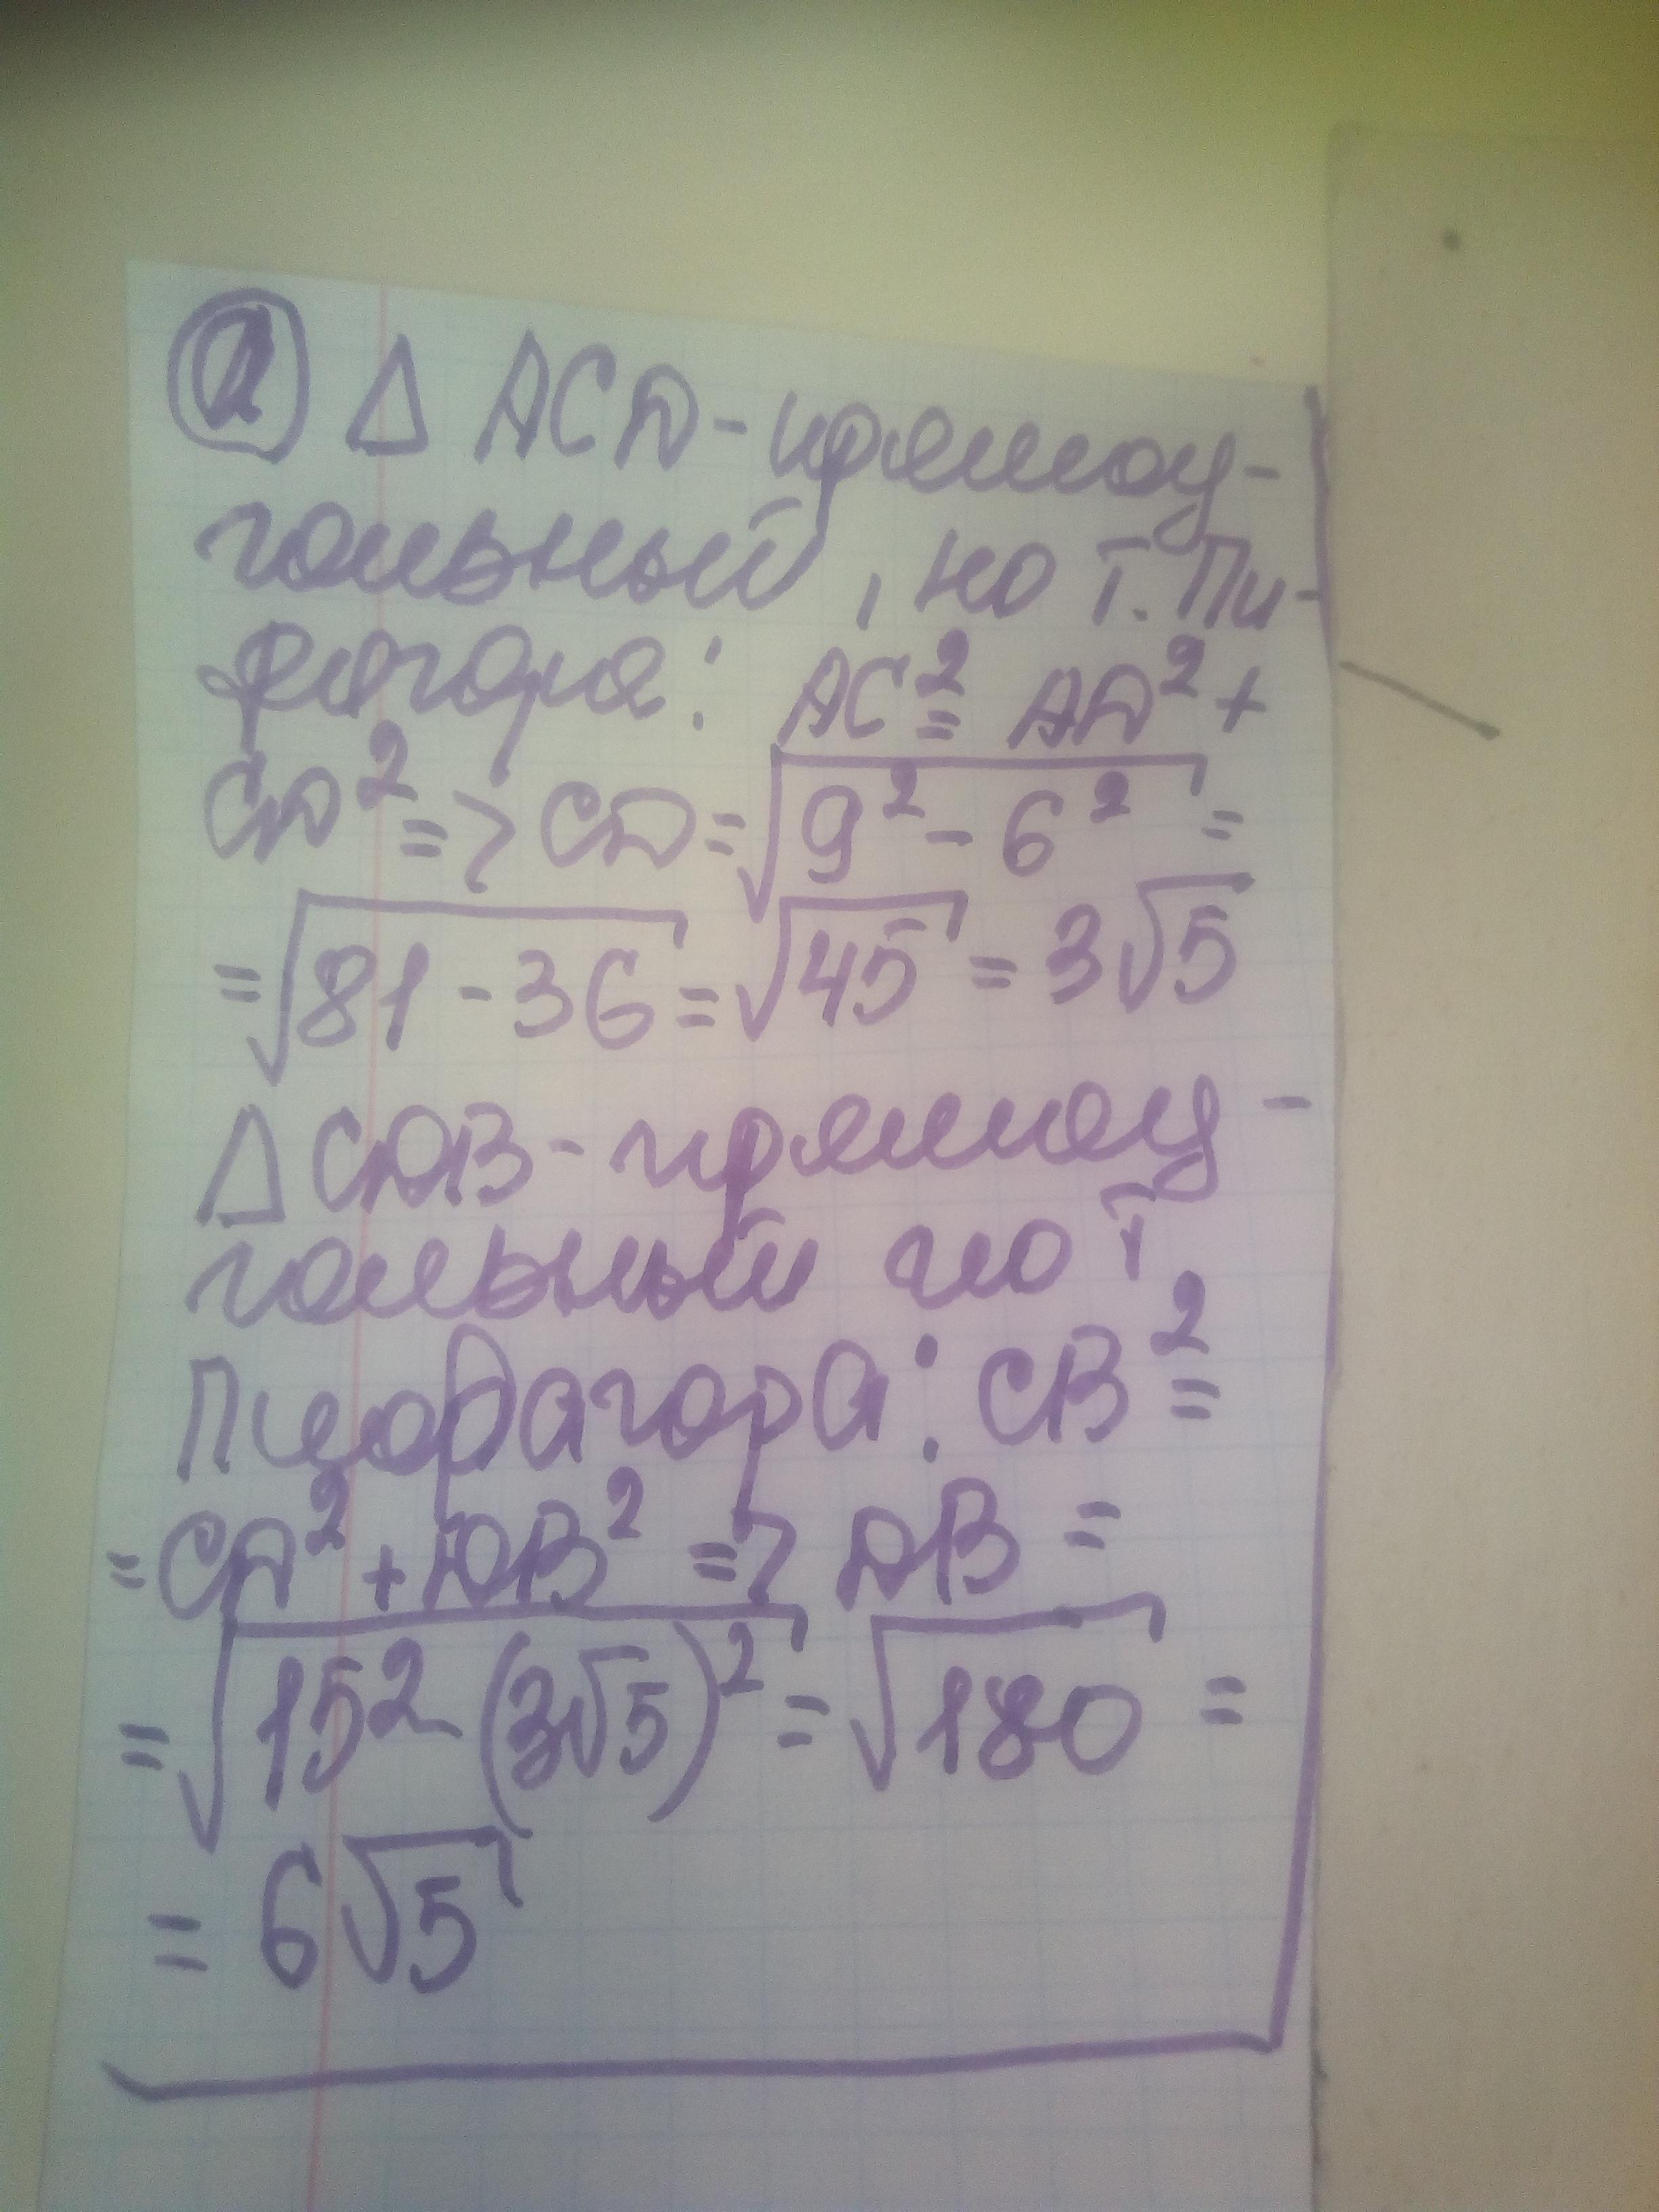 а) Δ ACD - прямоу-
гольный, по т. Пи-
фагора: AC²= AD² +
CD² => CD = √(9² - 6²) =
= √(81 - 36) = √45 = 3√5
Δ CDB - прямоу -
гольный по т.
Пифагора: CB² =
= CD² + DB² => DB =
= √(15² - (3√5)²) = √180 =
= 6√5